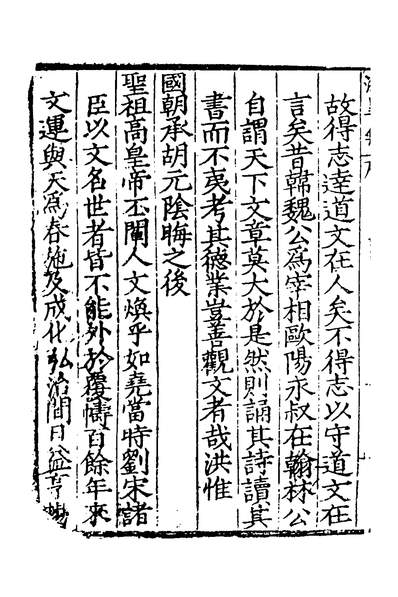 故得志達道文在人矣不得志以守道文在
言矣昔韓魏公爲宰相歐陽永叔在翰林公
自謂天下文章莫大於是然則誦其詩讀其
書而不夷考其德業豈善觀文者哉洪惟
國朝承胡元陰晦之後
聖祖高皇帝丕闡人文煥乎如堯當時劉宋諸
臣以文名世者皆不能外於覆幬百餘年來
文運與天爲春施及成化弘治間日益亨